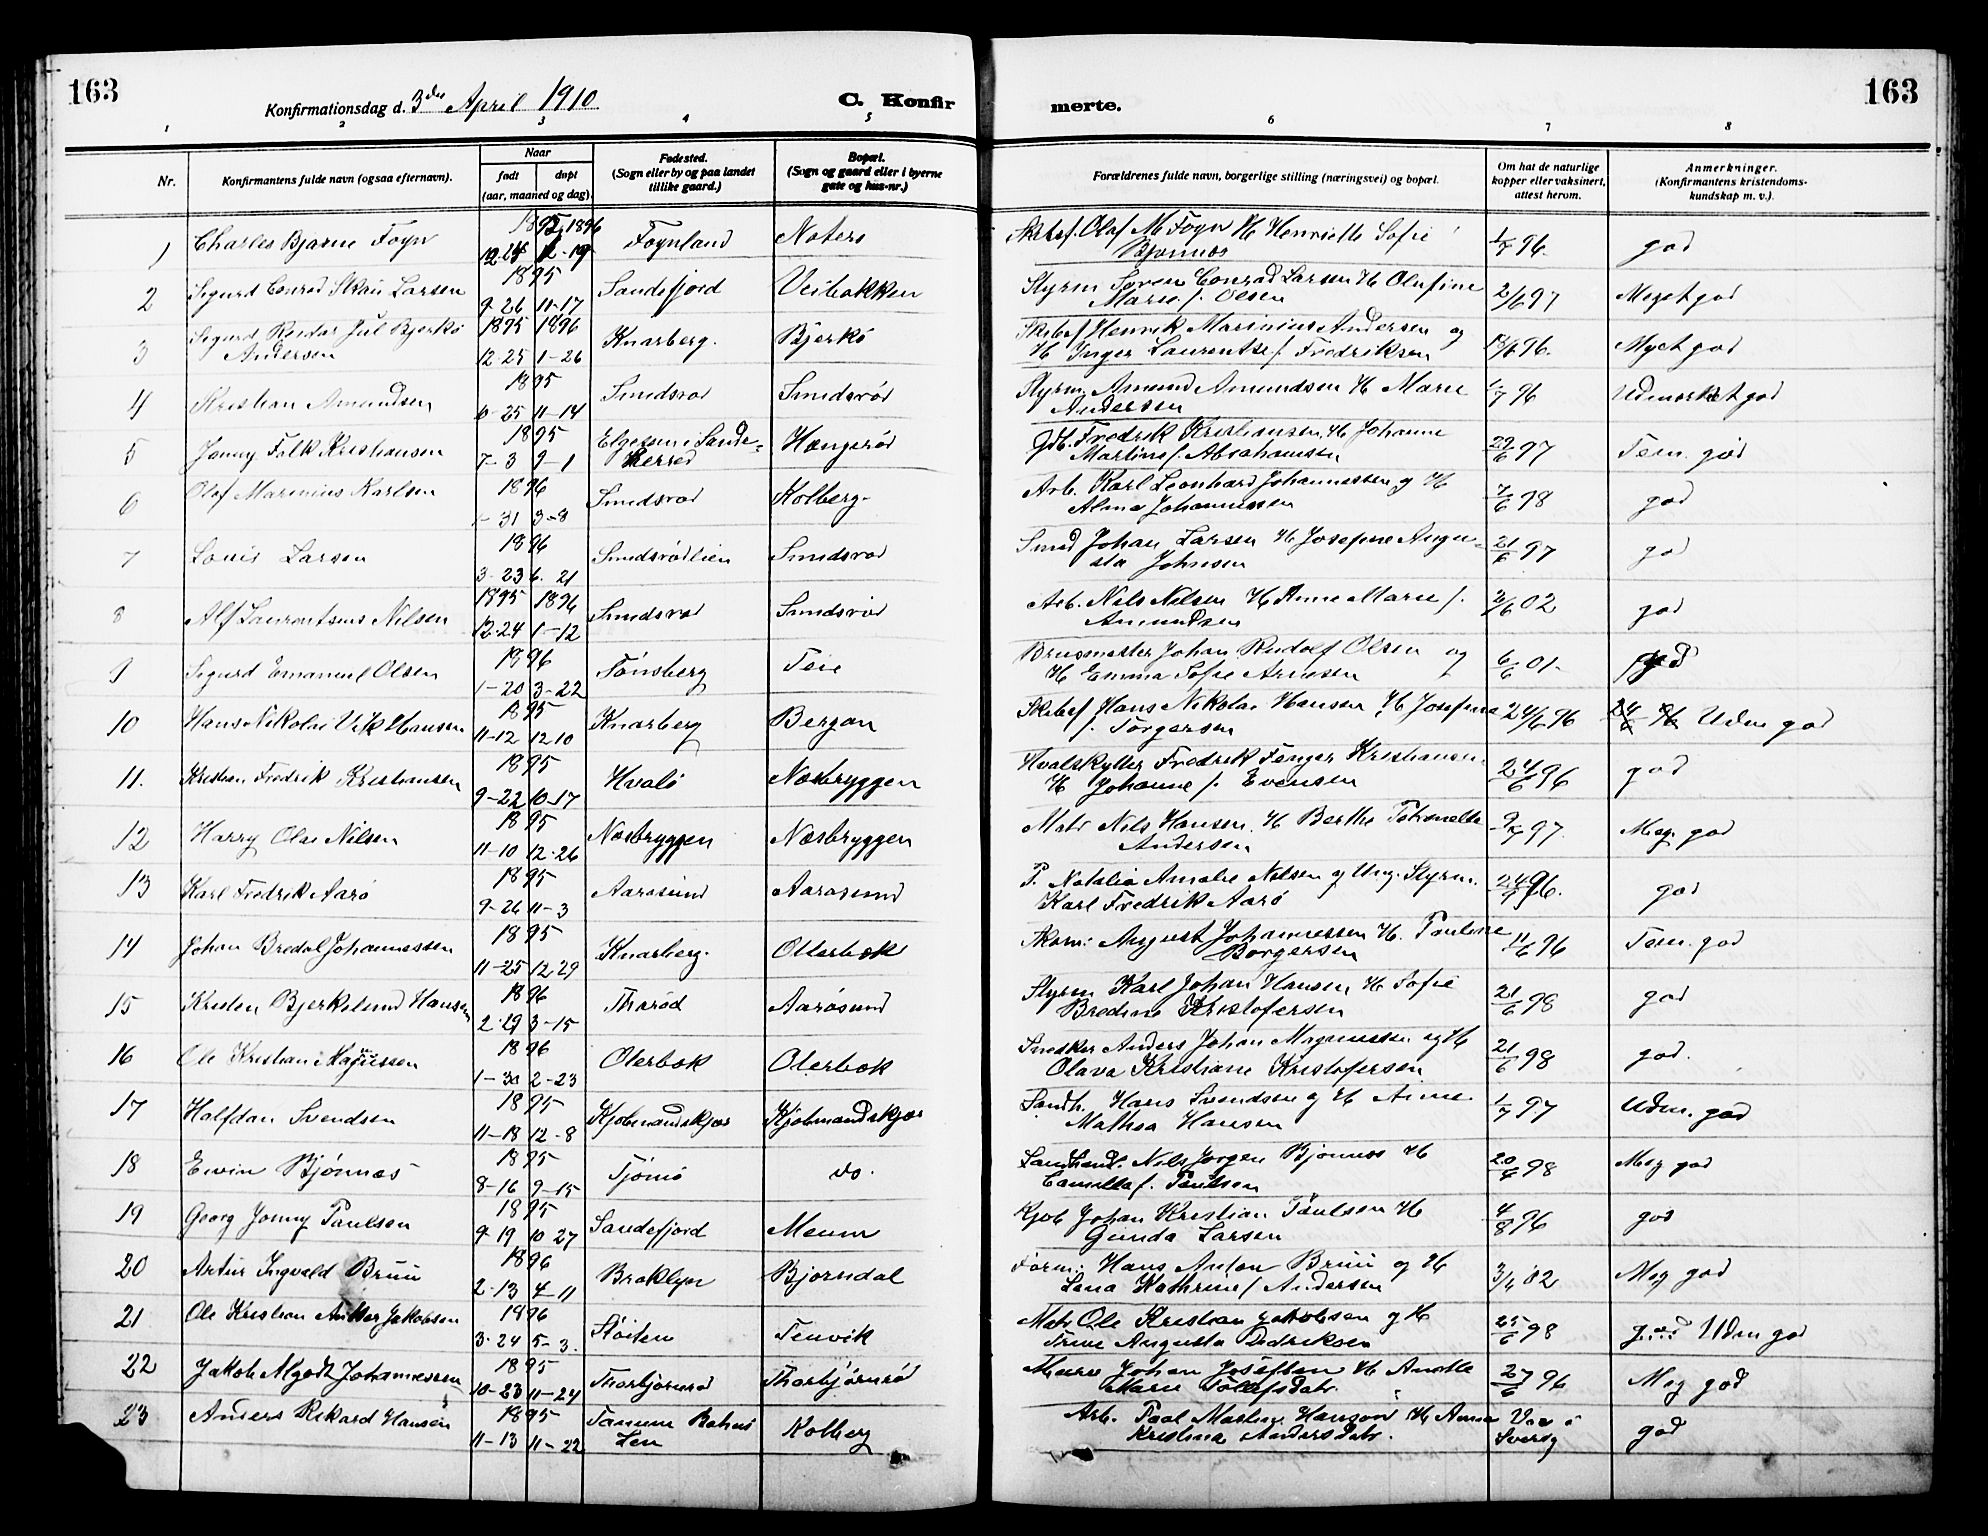 163
Konfirmationsdag d. 3die April 1910
C. Konfir
merte.
163
1 2 3 4 5 6 7 8
Nr.
Konfirmantens fulde navn (ogsaa efternavn).
Naar
født døpt
(aar, maaned og dag)
Fødested.
(Sogn eller by og paa landet
tillike gaard.)
Bopæl.
(Sogn og gaard eller i byerne
gate og hus-nr.)
Forældrenes fulde navn, borgerlige stilling (næringsvei) og bopæl.
Om hat de naturlige
kopper eller vaksinert,
attest herom.
Anmerkninger.
(Konfirmantens kristendoms-
kundskap m. v.).
1895 1896
1 Charles Bjarne Føyn 12 Føynland Nøterø Skibsf. Olaf M Føyn H Henriette Sofie 1/7 96. god
Bjønnes
1895
2 Sigurd Conrad Larsen 9-26 11-17 Sandefjord Veibakken Styrm Søren Conrad Larsen H Olufine 2/6 97 Meget god
Marie f. Olsen
1895 1896
3 Sigurd Reidar Jul Bjerkø 12-25 1-26 Knarberg. Bjerkø Skibsf Henrik Marinius Andersen og 96. Myet god
Andersen H Inger Laurentse f. Fredriksen
1895
4 Kristian Amundsen 6-25 11-14 Smidsrød Smidsrød Styrm Amund Amundsen H Marie 1/7 96 Udmerket god
Anderssen
1895
5 Jonny Falk Kristiansen 7-3 9-1 Elgesem i Sande- Hængsrød Fredrik Kristiansen, H Johanne 29/6 97 Tem. god
herred Martine f. Abrahamsen
1896
6 Olaf Marinius Karlsen 1-31 3-8 Smidsrød Kolberg. Arb. Karl Leonhard Johannessen og H 7/6 98 god
Alma Johannessen
1896
7 Louis Larsen 3-23 6-21 Smidsrødlien Smidsrød Smed Johan Larsen H Josefine Augu- 21/6 97 god
sta Johnsen
1895 1896
8 Alf Laurentsius Nilsen 12-24 1-12 Smidsrød Smidsrød Arb. Nils Nilsen H Anne Marie f. 2/6 02 god
Amundsen
1896
9 Sigurd Emanuel Olsen 1-20 3-22 Tønsberg Teie Brugmester Johan Rudolf Olsen og 6/6 01. god
H Emma Sofie Arnesen
1895
10 Hans Nikolai Vik Hansen 11-12 12 10 Knarberg Bergan Skibsf Hans Nikolai Hansen H Josefine 24/6 96 Udm god
f. Torgersen
1895
11. Kristian Fredrik Kristiansen 9-22 10-17 Hvalø Næsbryggen Hvalskytter Fredrik Fenger Kristiansen. 24/6 96 god
H Johanne f. Evensen
1895
12 Harry Olai Nilsen 11-10 12-26 Næsbryggen Næsbryggen Matr Nils Hansen. H Berthe 97. Meg. god
Andersen
1895
13 Karl Fredrik Aarø 9-26 11-3 Aarøsund Aarøsund P. Natalia Amalie Nilsen og Ung. Styrm. 96. god
Karl Fredrik Aarø
1895
14 Johan Bredal Johannessen 11-25 12 29 Knarberg. Oterbæk August Johannessen H. Pauline 11/6 96 Tem. god
Borgersen
1896
15 Kristen Bjerkelund Hansen 2-29 3-15 Thorød Aarøsund Styrm Karl Johan Hansen H Sofie 21/6 98 god
Bredine Kristofersen
1896
16 Ole Kristian Magnussen 1-30 2-23 Oterbæk Oterbæk Snedker Anders Johan Magnussen og H 21/6 98 god.
Olava Kristiane Kristofersen
1895
17 Halfdan Svendsen 11-18 12-8 Kjøbmandskjær Kjøbmandskjær Landh. Hans Svendsen og H Anne 1/7 97 Udm. god
Mathea Hansen
1895
18 Erwin Bjønnæs 8-16 9-15 Tjømø do. Landhand. Nils Jørgen Bjønnes H 20/6 98 Meg god
Camilla f. Paulsen
1895
19 Georg Jonny Paulsen 9-19 10 27 Sandefjord Meum Kjøb Johan Kristian Paulsen H 4/8 96 god
Gunda Larsen
1896
20 Artur Ingvald Bruu 2-13 4-11 Broklyn Bjørndal Form: Hans Anton Bruu og H 3/6 02 Meg god
Lena Kathrine f Andersen
1896
21 Ole Kristian Anker Jakobsen 3-24 5-3. Støiten Tenvik Matr Ole Kristian Jakobsen og H 25/6 98 Udm god
Trine Augusta Dedriksen
1895
22 Jakob Algodt Johannessen 10-23 11-24 Thorbjørnrød Thorbjørnrød Murer Johan Joseftsen H Anette 27/6 96 Meg god
Marie Tollefsdatr
1895
23 Anders Rikard Hansen 11-13 11-22 Tanum Bohus Kolberg Arb. Paal Martin Hanson H Anna Vac i god
Len Kristina Andersdatr. Sverig